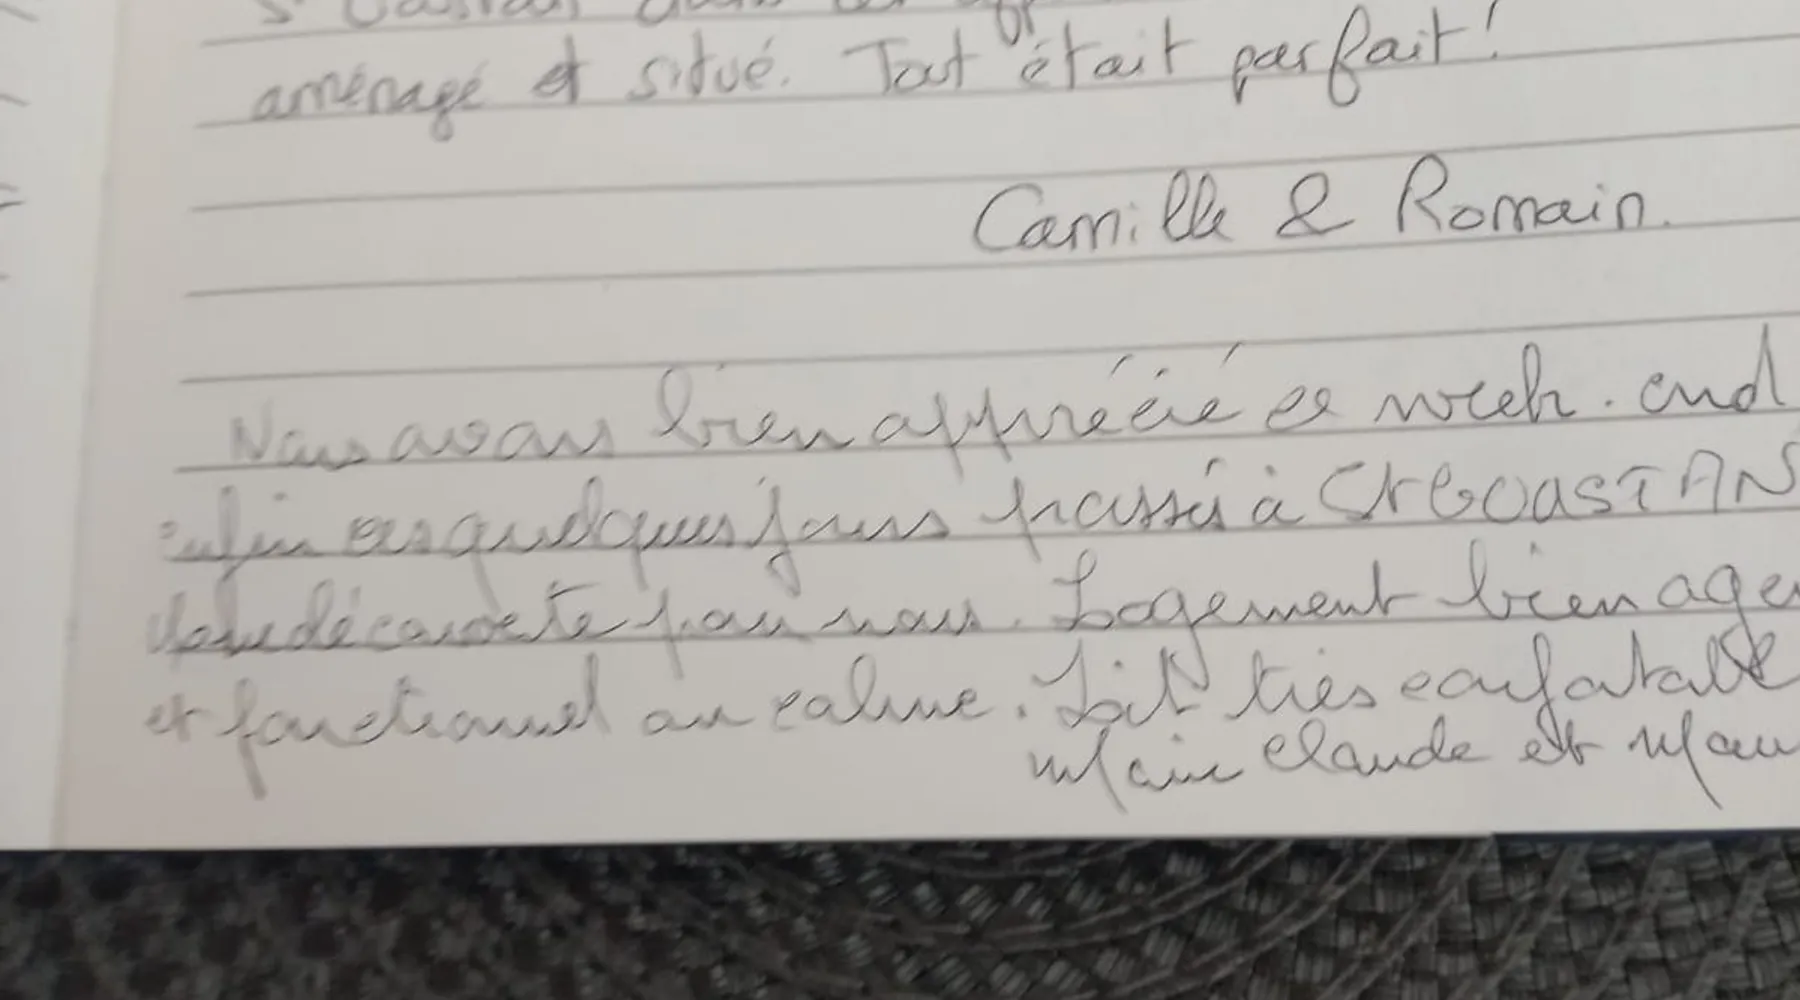 St Gastan dans cet app
aménagé et situé. Tout était parfait!
Camille & Romain.
Nous avons bien apprécié ce week-end
enfin ces quelques jours passés à St GOASTAN
découverte pour nous. Logement bien age
et fonctionnel au calme. Lit très confortable
Marie Claude et Mau